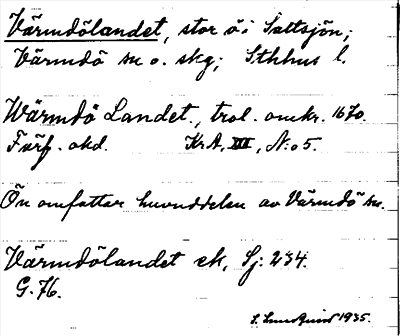 Värmdölandet, stor ö i Saltsjön;
Värmdö sn o. skg; Sthlms l.
Wärmdö Landet., trol. omkr. 1670.
Förf. okd. KrA, XIII, N:o 5.
Ön omfattar huvuddelen av Värmdö sn.
Värmdölandet ek, Sj: 234.
G. 76.
S. Lundquist 1935.